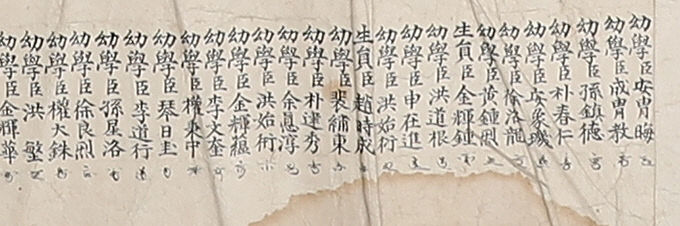 幼學臣安胄晦
幼學臣成胄教
幼學臣孫鎮德
幼學臣朴春仁
幼學臣安象璣
幼學臣徐洛龍
幼學臣黃鍾烈
生員臣金輝鍾
幼學臣洪道根
幼學臣申在進
幼學臣洪始衍
生員臣趙時成
幼學臣裴繡東
幼學臣朴達秀
幼學臣余思淳
幼學臣洪始衎
幼學臣金輝蘊
幼學臣李文奎
幼學臣權秉中
幼學臣琴日圭
幼學臣李道行
幼學臣孫星洛
幼學臣徐良烈
幼學臣權大銖
幼學臣洪
幼學臣金輝華